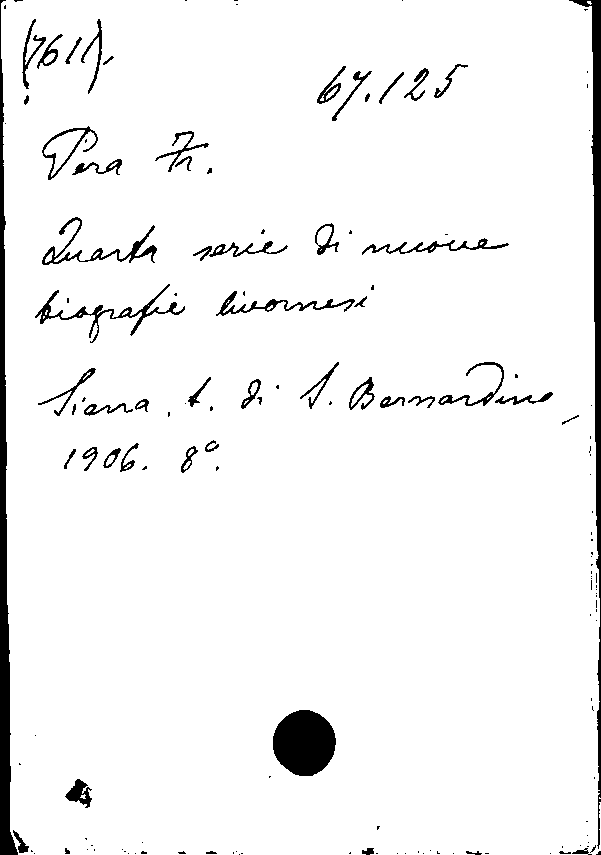 (7611).
67.125
Pera Fr.
Quarta serie di nuove
biografie livornesi
Siena, t. di S. Bernardino,
1906. 8º.